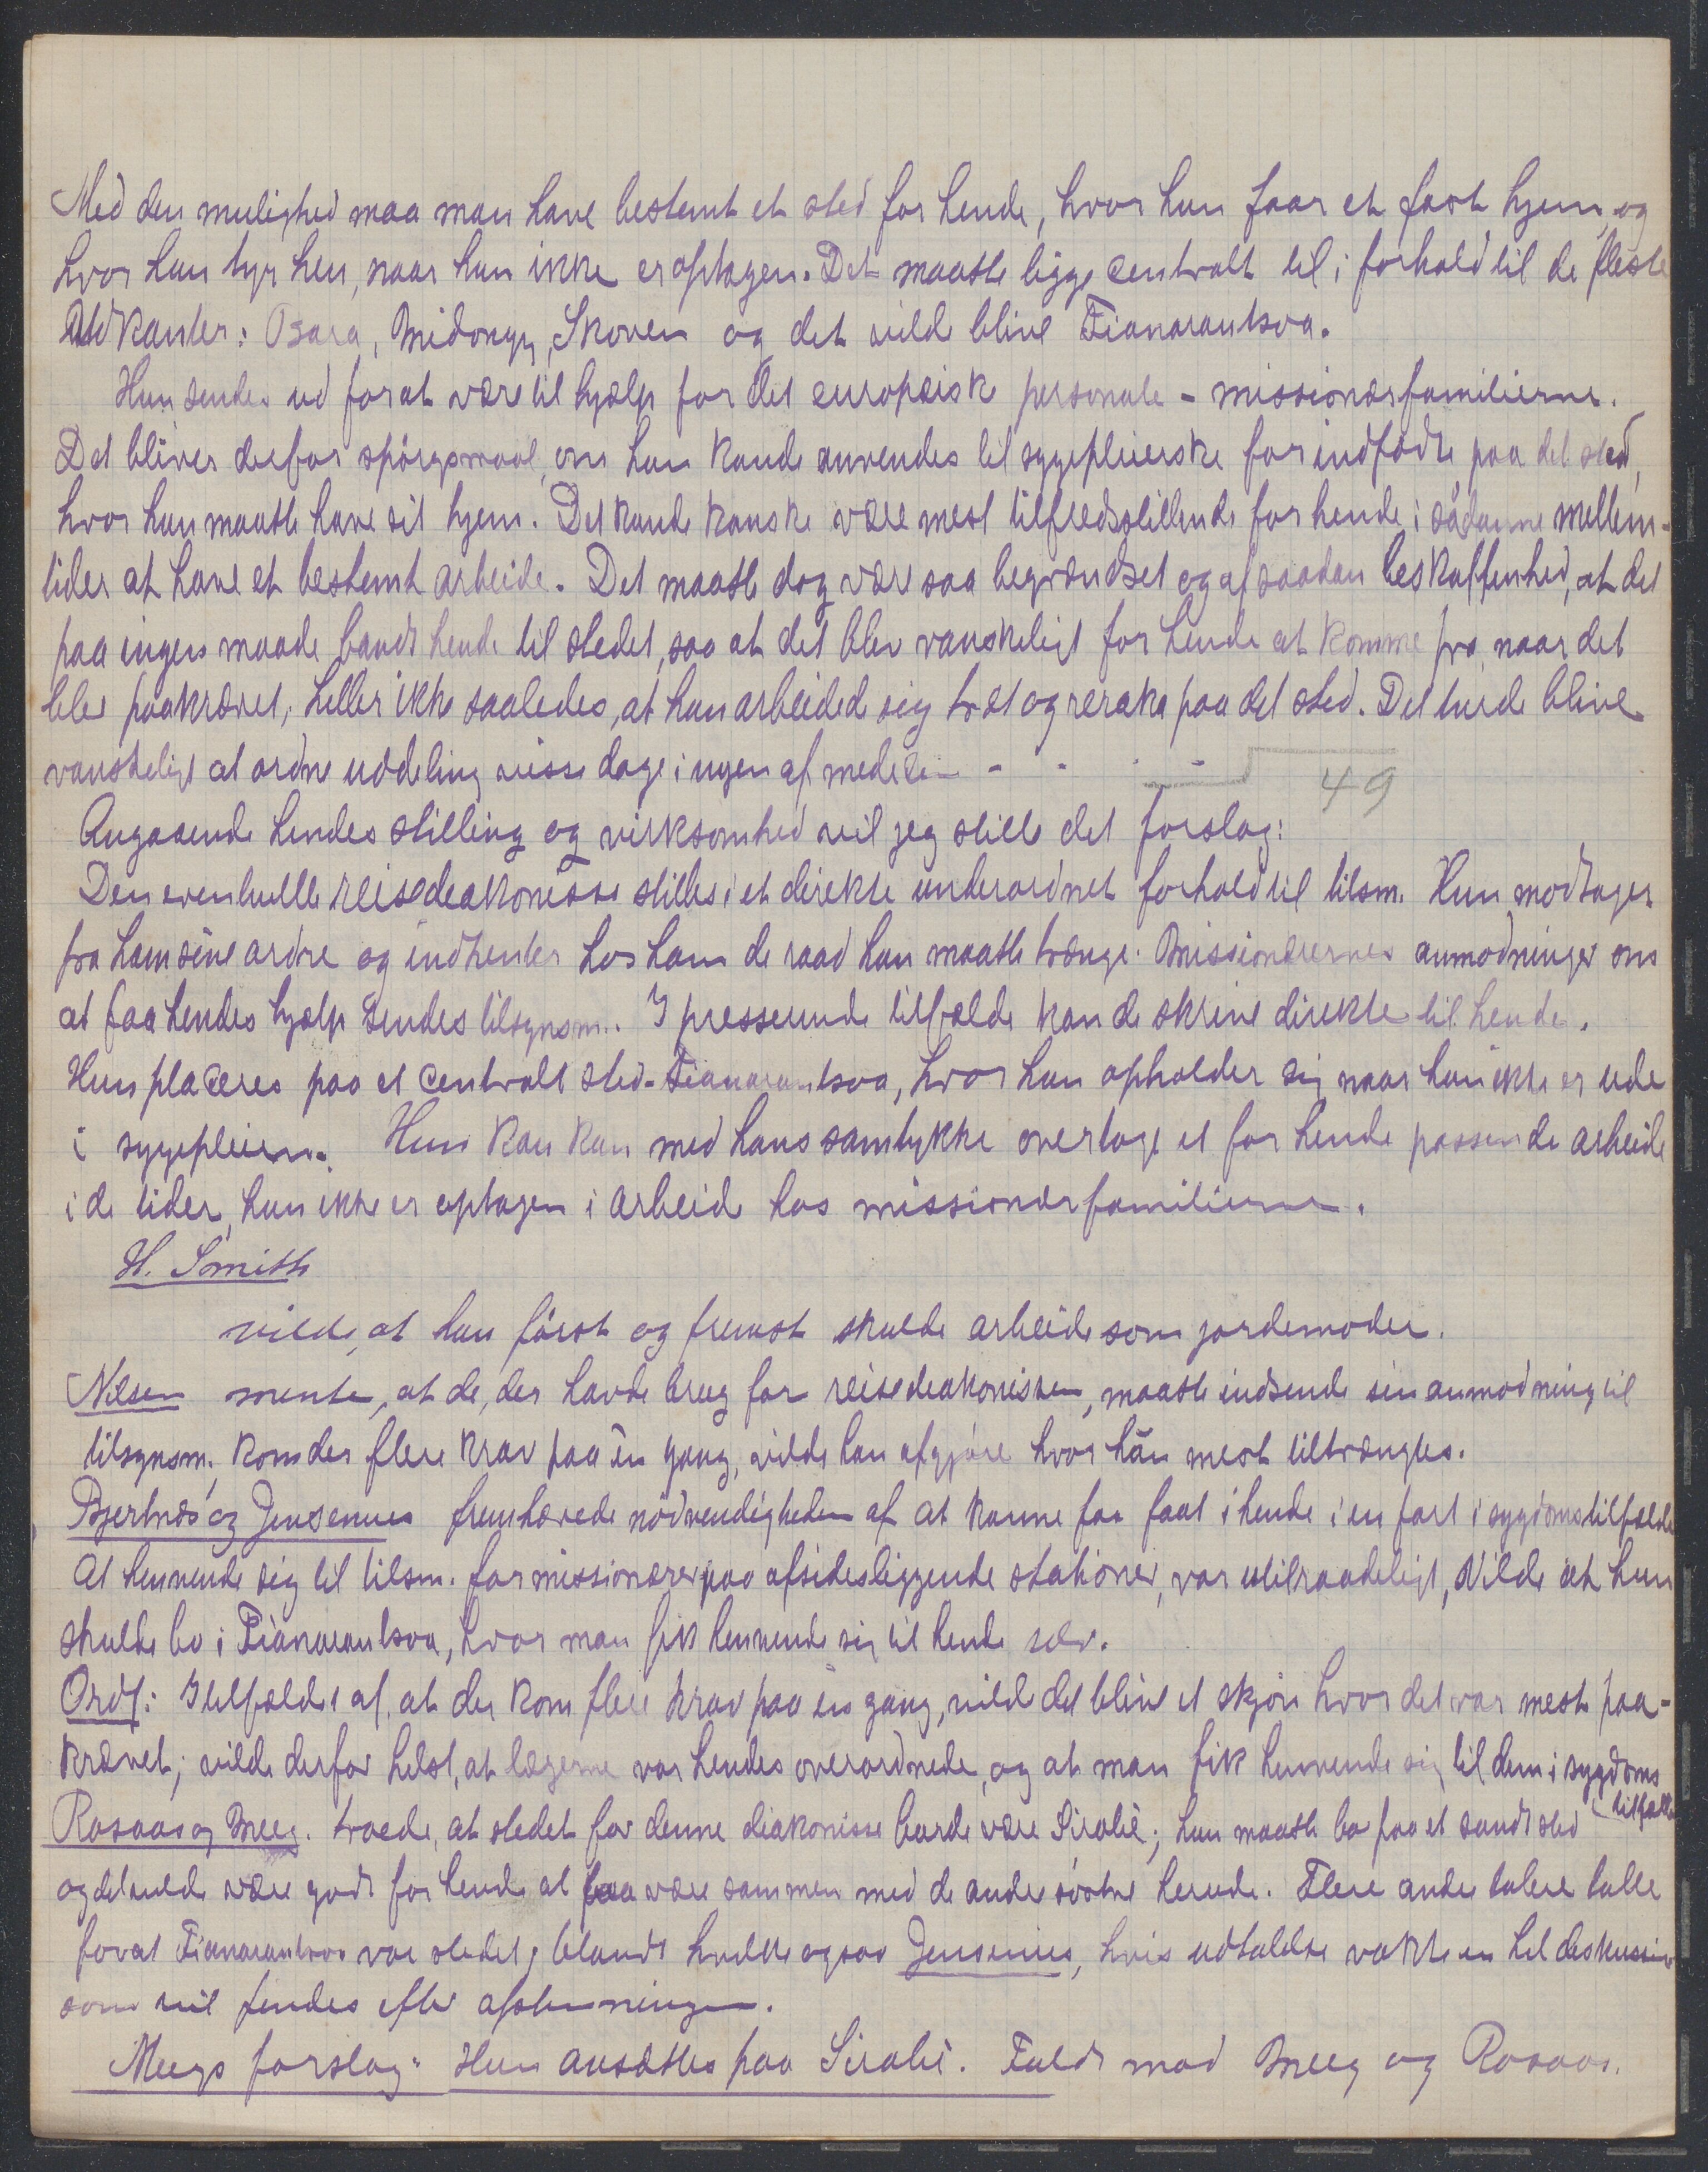 Med den mulighed maa man have bestemt et sted for hende, hvor hun faar et fast hjem, og
hvor hun tyr hen, naar hun ikke er optagen. Det maatte ligge centralt til i forhold til de fleste
udkanter: Osara, Midongy, Skoven og det vilde blive Fianarantsoa.
Hun sendes ud for at være til hjælp for det europæiske personale - missionærfamilierne.
Det bliver derfor spörgsmaal, om hun kunde anvendes til sygepleierske for indfødte paa det sted,
hvor hun maatte have sit hjem. Det kunde kanske være mest tilfredsstillende for hende i sådanne mellem-
tider at have et bestemt arbeide. Det maatte dog være saa begrændset og af saadan beskaffenhed, at det
paa ingen maade bandt hende til stedet, saa at det blev vanskeligt for hende at komme fra, naar det
blev paakrævet, heller ikke saaledes, at hun arbeided sig træt og reraka paa det sted. Det turde blive
vanskeligt at ordne uddeling visse dage i ugen af medicin - - - -
49
Angaaende hendes stilling og virksomhed vil jeg stille det forslag:
Den eventuelle reisediakonisse stilles i et direkte underordnet forhold til tilsm. Hun modtager
fra ham sine ordre og indhenter hos ham de raad hun maatte trænge. Missionærernes anmodninger om
at faa hendes hjælp sendes tilsynsm. I presserende tilfælde kan de skrive direkte til hende.
Hun placeres paa et centralt sted - Fianarantsoa, hvor hun opholder sig naar hun ikke er ude
i sygepleien. Hun kan kan med hans samtykke overtage et for hende passende arbeide
i de tider, hun ikke er optagen i arbeid hos missionærfamilierne.
H. Smith
vilde, at hun först og fremst skulde arbeide som jordemoder.
Nilsen mente, at de, der havde brug for reisediakonissen, maatte indsende sin anmodning til
tilsynsm. Kom der flere krav paa én gang, vilde han afgjøre hvor hun mest tiltrængtes.
Bjertnæs og Jensenius fremhævede nödvendigheden af at kunne faa fat i hende i en fart i sygdomstilfælde
At henvende sig til tilsm. for missionærer paa afsidesliggende stationer, var utilraadeligt, Vilde at hun
skulde bo i Fianarantsoa, hvor man fik henvende sig til hende selv.
Ordf: I tilfælde af, at der kom flere krav paa én gang, vilde det blive et skjön hvor det var mest paa-
krævet; vilde derfor helst, at lægerne var hendes overordnede, og at man fik henvende sig til dem i sygdoms
tilfælde
Rosaas og Meeg. troede, at stedet for denne diakonisse burde være Sirabé; hun maatte bo paa et sundt sted
og det vilde være godt for hende at faa være sammen med de andre söstre herude. Flere andre talere talte
for at Fianarantsoa var stedet, blandt hvilke ogsaa Jensenius, hvis udtalelse vakte en hel diskussion
som vil findes efter afstemningen.
Meegs forslag: Hun ansættes paa Sirabé. Faldt mod Meeg og Rosaas.